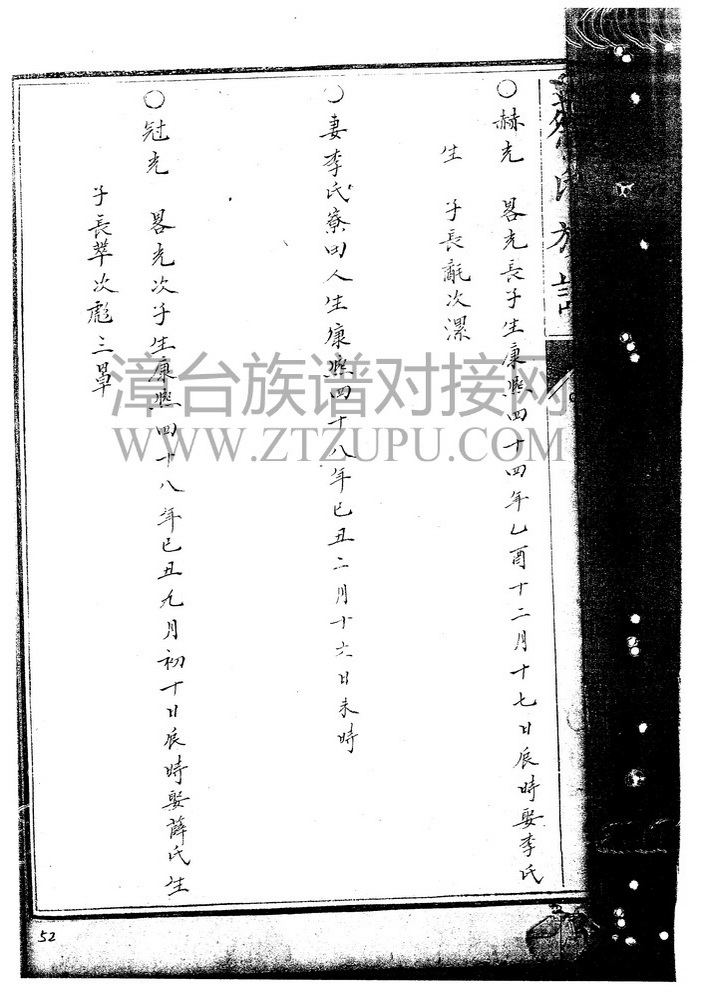 氏族譜
○赫光 畧光長子生康熙四十四年乙酉十二月十七日辰時娶李氏
生 子長 次漯
○妻李氏寮田人生康熙四十八年已丑二月十六日未時
○冠光 畧光次子生康熙四十八年已丑九月初十日辰時娶薛氏生
子長 次彪三
漳台族谱对接网
WWW.ZTZUPU.COM
52